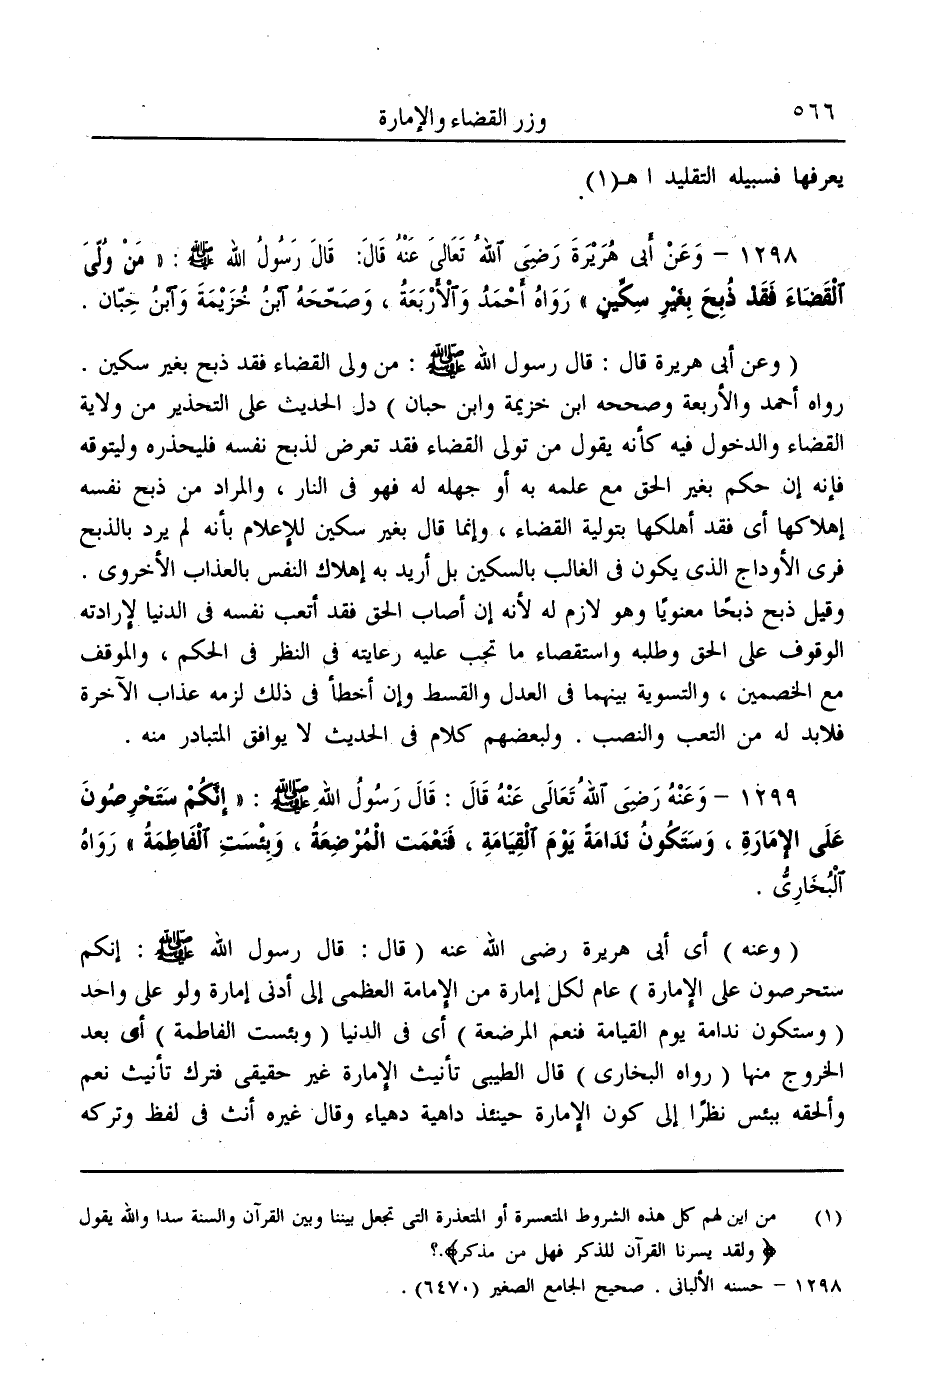 ٥٦٦
وزر القضاء والإمارة
يعرفها فسبيله التقليد ا هـ(١).
١٢٩٨ - وَعَنْ أَبِى هُرَيْرَةَ رَضِىَ ٱللهُ تَعَالىَ عَنْهُ قَالَ: قَالَ رَسُولُ الله ﷺ : « مَنْ وُلِّىَ
ٱلْقَضَاءَ فَقَدْ ذُبِحَ بِغَيْرِ سِكِّينٍ » رَوَاهُ أَحْمَدُ وَٱلْأَرْبَعَةُ ، وَصَحَّحَهُ ٱبْنُ خُزَيْمَةَ وَٱبْنُ حِبَّان .
( وعن أبى هريرة قال : قال رسول الله ﷺ : من ولى القضاء فقد ذبح بغير سكين .
رواه أحمد والأربعة وصححه ابن خزيمة وابن حبان ) دل الحديث على التحذير من ولاية
القضاء والدخول فيه كأنه يقول من تولى القضاء فقد تعرض لذبح نفسه فليحذره وليتوقه
فإنه إن حكم بغير الحق مع علمه به أو جهله له فهو فى النار ، والمراد من ذبح نفسه
إهلاكها أى فقد أهلكها بتولية القضاء ، وإنما قال بغير سكين للإعلام بأنه لم يرد بالذبح
فرى الأوداج الذى يكون فى الغالب بالسكين بل أريد به إهلاك النفس بالعذاب الأخروى .
وقيل ذبح ذبحًا معنويًا وهو لازم له لأنه إن أصاب الحق فقد أتعب نفسه فى الدنيا لإرادته
الوقوف على الحق وطلبه واستقصاء ما تجب عليه رعايته فى النظر فى الحكم ، والموقف
مع الخصمين ، والتسوية بينهما فى العدل والقسط وإن أخطأ فى ذلك لزمه عذاب الآخرة
فلابد له من التعب والنصب . ولبعضهم كلام فى الحديث لا يوافق المتبادر منه .
١٢٩٩ - وَعَنْهُ رَضِىَ ٱللهُ تَعَالَى عَنْهُ قَالَ : قَالَ رَسُولُ اللهِ ﷺ : « إِنَّكُمْ سَتَحْرِصُونَ
عَلَى الإِمَارَةِ ، وَسَتَكُونُ نَدَامَةً يَوْمَ ٱلْقِيَامَةِ ، فَنَعْمَت الْمُرْضِعَةُ ، وَبِئْسَتِ ٱلْفَاطِمَةُ » رَوَاهُ
ٱلْبُخَارِىُّ .
( وعنه ) أى أبى هريرة رضى الله عنه ( قال : قال رسول الله ﷺ : إنكم
ستحرصون على الإمارة ) عام لكل إمارة من الإمامة العظمى إلى أدنى إمارة ولو على واحد
( وستكون ندامة يوم القيامة فنعم المرضعة ) أى فى الدنيا ( وبئست الفاطمة ) أى بعد
الخروج منها ( رواه البخارى ) قال الطيبى تأنيث الإمارة غير حقيقى فترك تأنيث نعم
وألحقه ببئس نظرًا إلى كون الإمارة حينئذ داهية دهياء وقال غيره أنث فى لفظ وتركه
(١) من اين لهم كل هذه الشروط المتعسرة أو المتعذرة التى تجعل بيننا وبين القرآن والسنة سدا والله يقول
﴿ ولقد يسرنا القرآن للذكر فهل من مذكر﴾.؟
١٢٩٨ - حسنه الألبانى . صحيح الجامع الصغير (٦٤٧٠) .